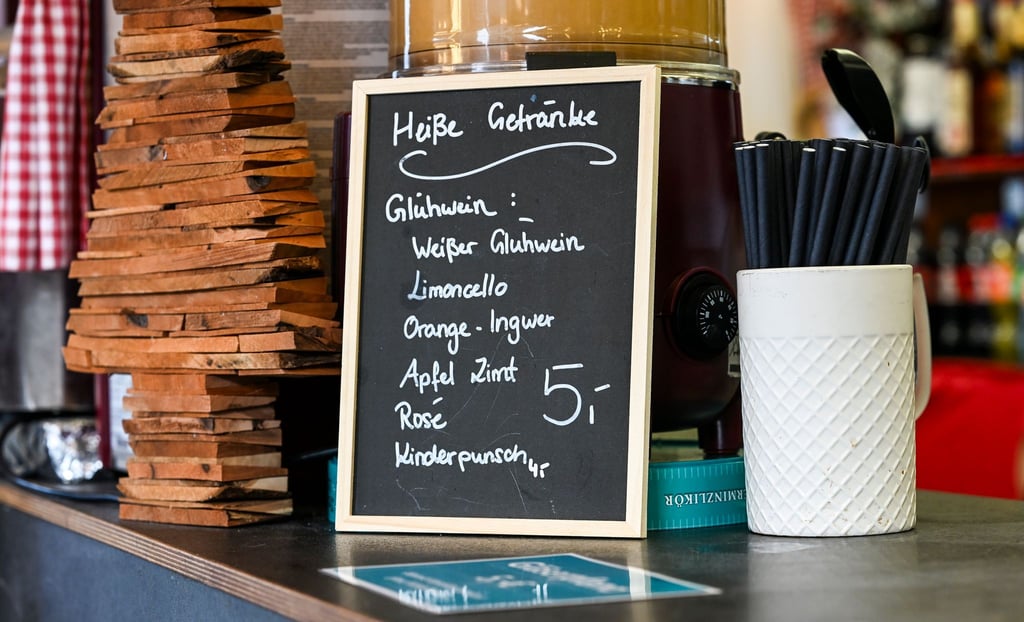 Heiße Getränke
Glühwein :
Weißer Glühwein
Limoncello
Orange-Ingwer
Apfel Zimt 5,-
Rosé
Kinderpunsch 4,-
ERMINZLIKÖR